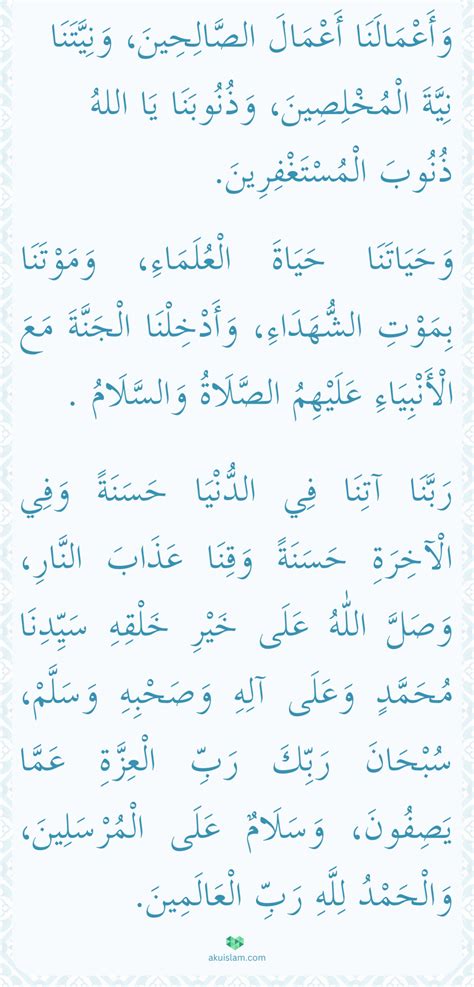 وَأَعْمَالَنَا أَعْمَالَ الصَّالِحِينَ، وَنِيَّتَنَا
نِيَّةَ الْمُخْلِصِينَ، وَذُنُوبَنَا يَا اللهُ
ذُنُوبَ الْمُسْتَغْفِرِينَ.
وَحَيَاتَنَا حَيَاةَ الْعُلَمَاءِ، وَمَوْتَنَا
بِمَوْتِ الشُّهَدَاءِ، وَأَدْخِلْنَا الْجَنَّةَ مَعَ
الْأَنْبِيَاءِ عَلَيْهِمُ الصَّلَاةُ وَالسَّلَامُ .
رَبَّنَا آتِنَا فِي الدُّنْيَا حَسَنَةً وَفِي
الْآخِرَةِ حَسَنَةً وَقِنَا عَذَابَ النَّارِ،
وَصَلَّ اللّٰهُ عَلَى خَيْرِ خَلْقِهِ سَيِّدِنَا
مُحَمَّدٍ وَعَلَى آلِهِ وَصَحْبِهِ وَسَلَّمْ،
سُبْحَانَ رَبِّكَ رَبِّ الْعِزَّةِ عَمَّا
يَصِفُونَ، وَسَلَامٌ عَلَى الْمُرْسَلِينَ،
وَالْحَمْدُ لِلَّهِ رَبِّ الْعَالَمِينَ.
akuislam.com